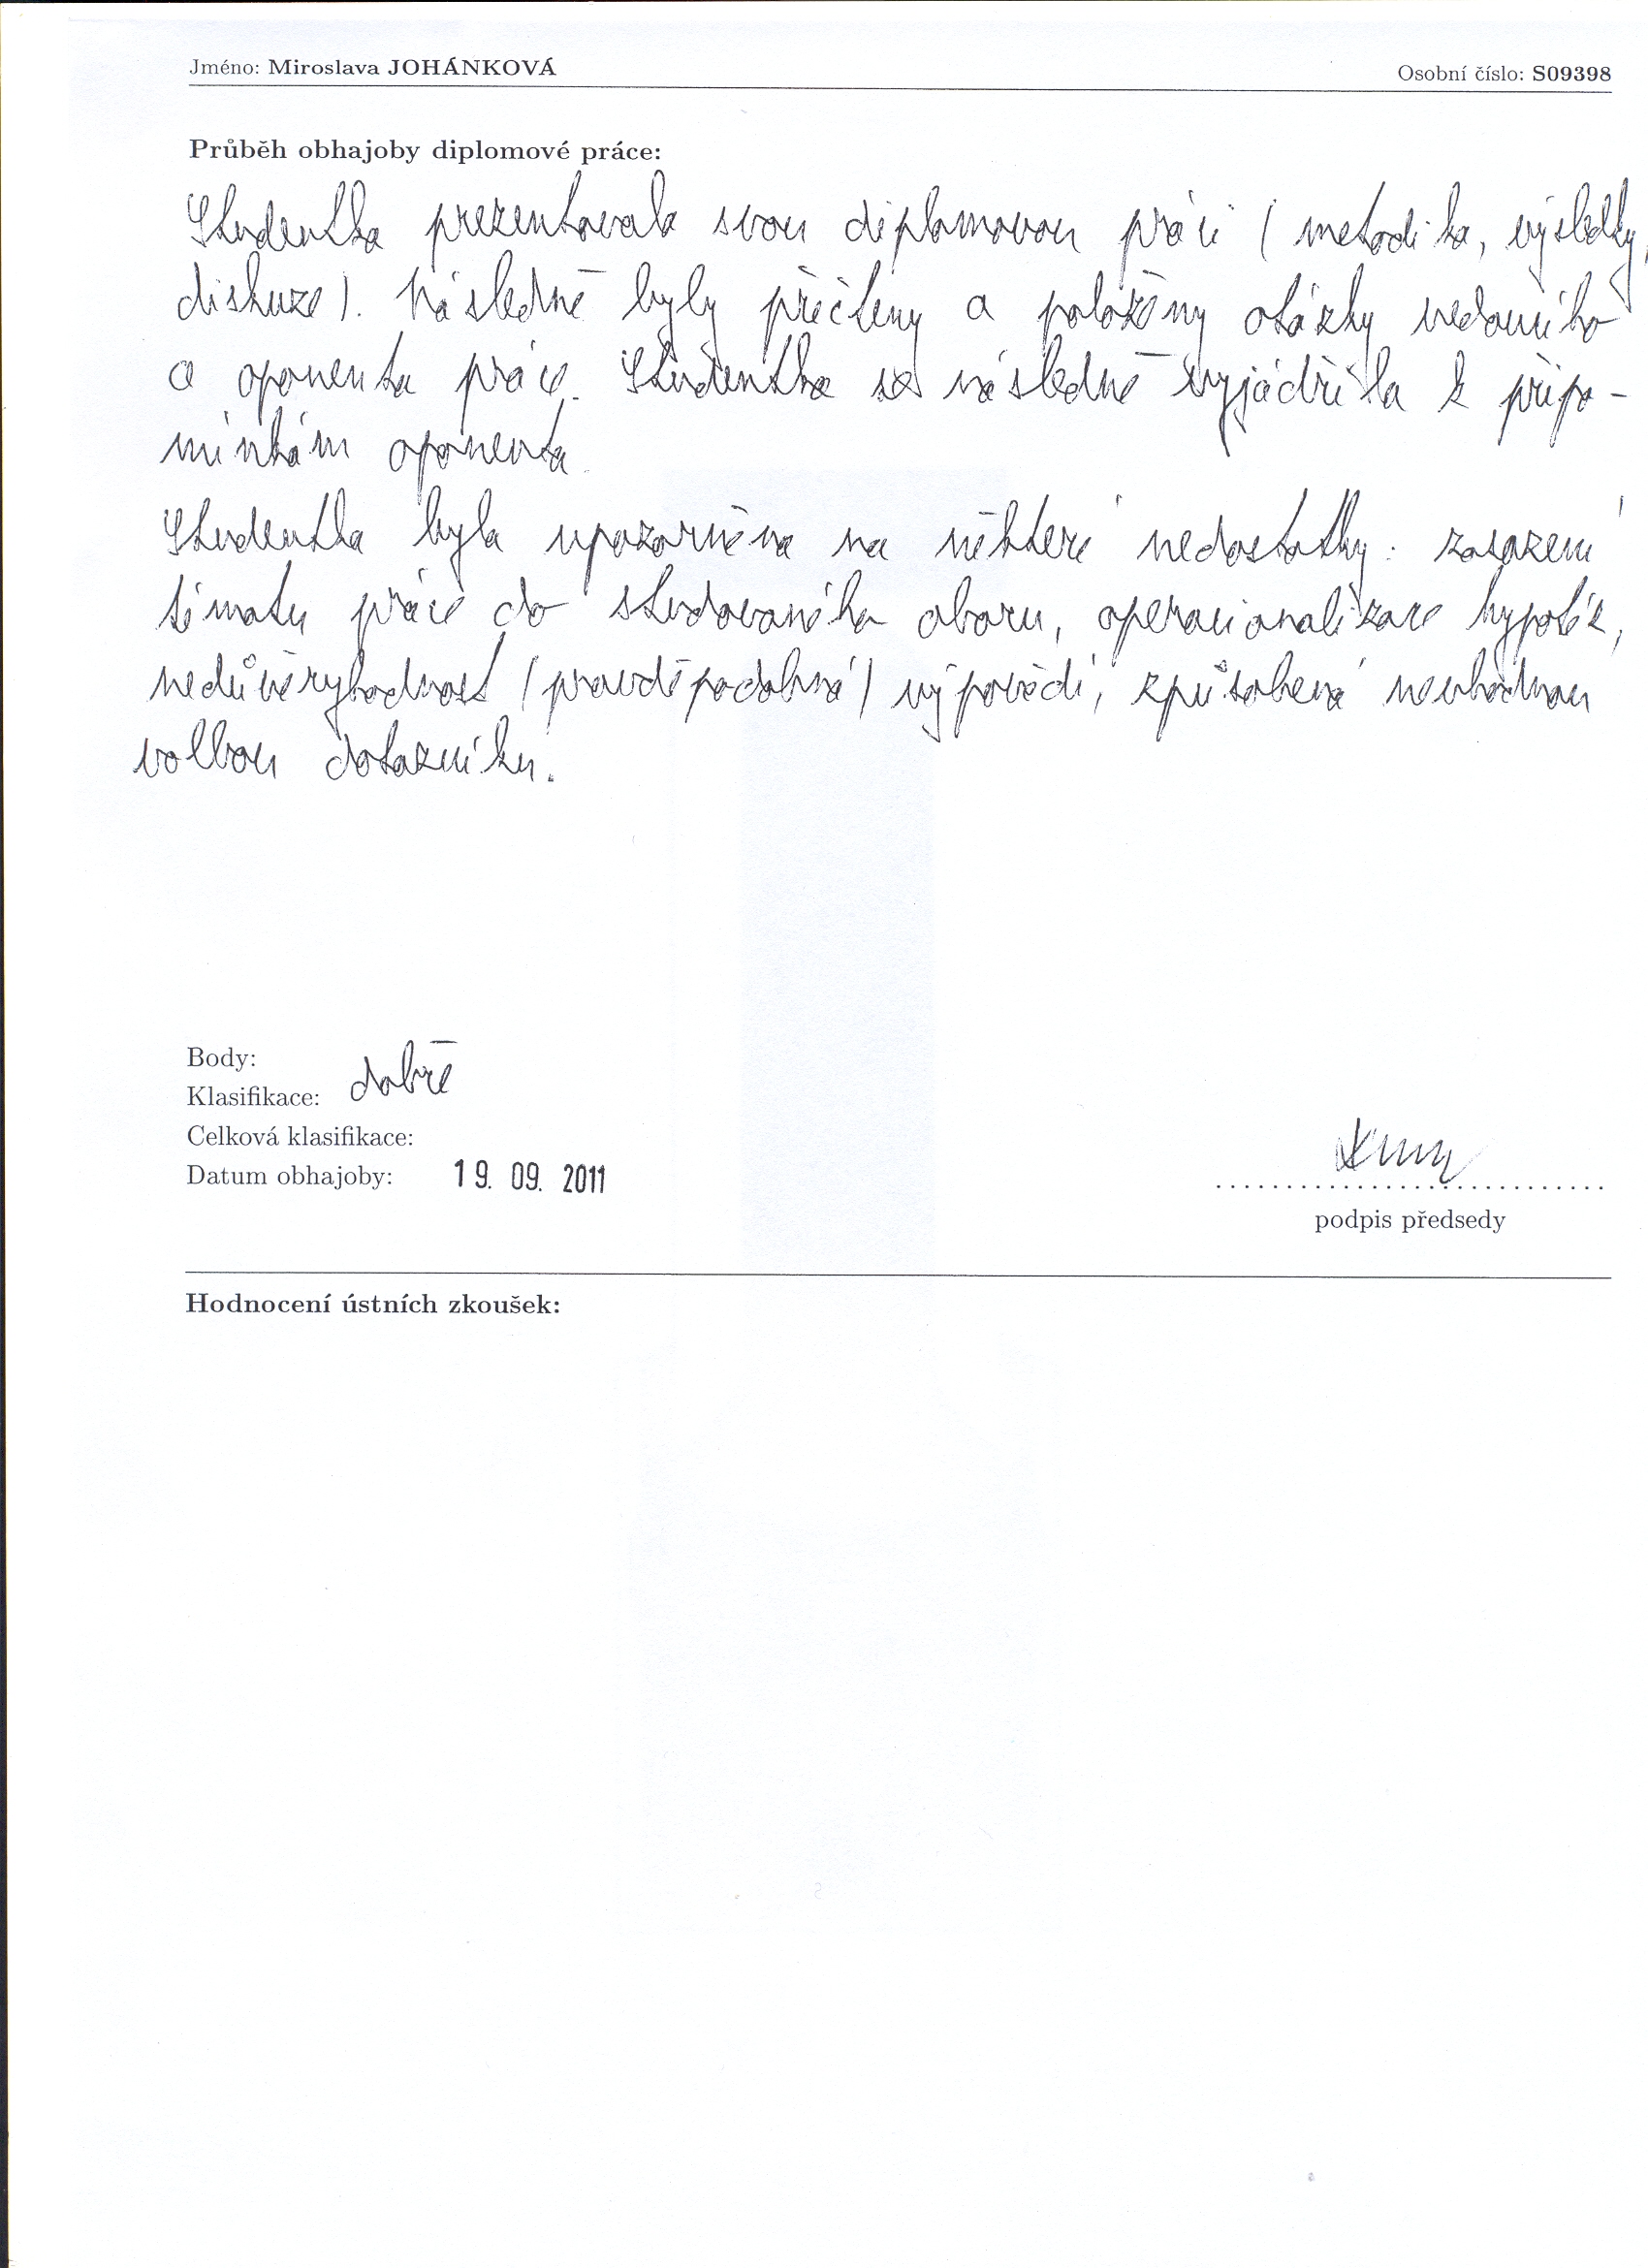 Jméno: Miroslava JOHÁNKOVÁ Osobní číslo: S09398
Průběh obhajoby diplomové práce:
Studentka prezentovala svou diplomovou práci (metodika, výsledky,
diskuze). Následně byly přečteny a položeny otázky vedoucího
a oponenta práce. Studentka se následně vyjádřila k připo-
mínkám oponenta.
Studentka byla upozorněna na některé nedostatky: zasazení
tématu práce do studovaného oboru, operacionalizace hypotéz,
nedůvěryhodnost (pravděpodobná) výpovědí, způsobená nevhodnou
volbou dotazníku.
Body:
Klasifikace: dobře
Celková klasifikace:
Datum obhajoby: 19. 09. 2011
podpis předsedy
Hodnocení ústních zkoušek: